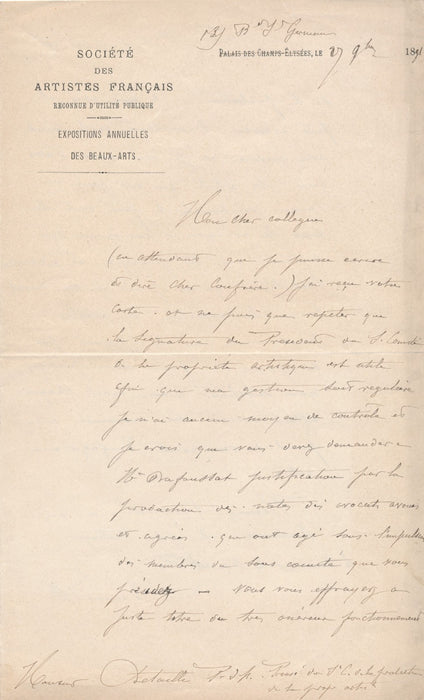 SOCIÉTÉ
DES
ARTISTES FRANÇAIS
RECONNUE D'UTILITÉ PUBLIQUE
EXPOSITIONS ANNUELLES
DES BEAUX-ARTS.
131 Bd St Germain
PALAIS DES CHAMPS-ÉLYSÉES, LE 27 9bre 189
Mon cher collegue
(en attendant que je puisse ecrire
et dire cher Confrère.) J'ai reçu votre
carte. et ne puis que repeter que
la signature du President du S. Comité
de la propriete artistique est utile
afin que ma gestion soit reguliere
je n'ai aucun moyen de contrôle et
je crois que vous devez demander a
Mr justification par la
production des notes des avocats avoues
et agréés que ont agé sous l'impulsion
des membres du sous comité que vous
présidez — Vous vous effrayez a
juste titre du tres onéreux fonctionnement
Monsieur Detaille du S. C. de la